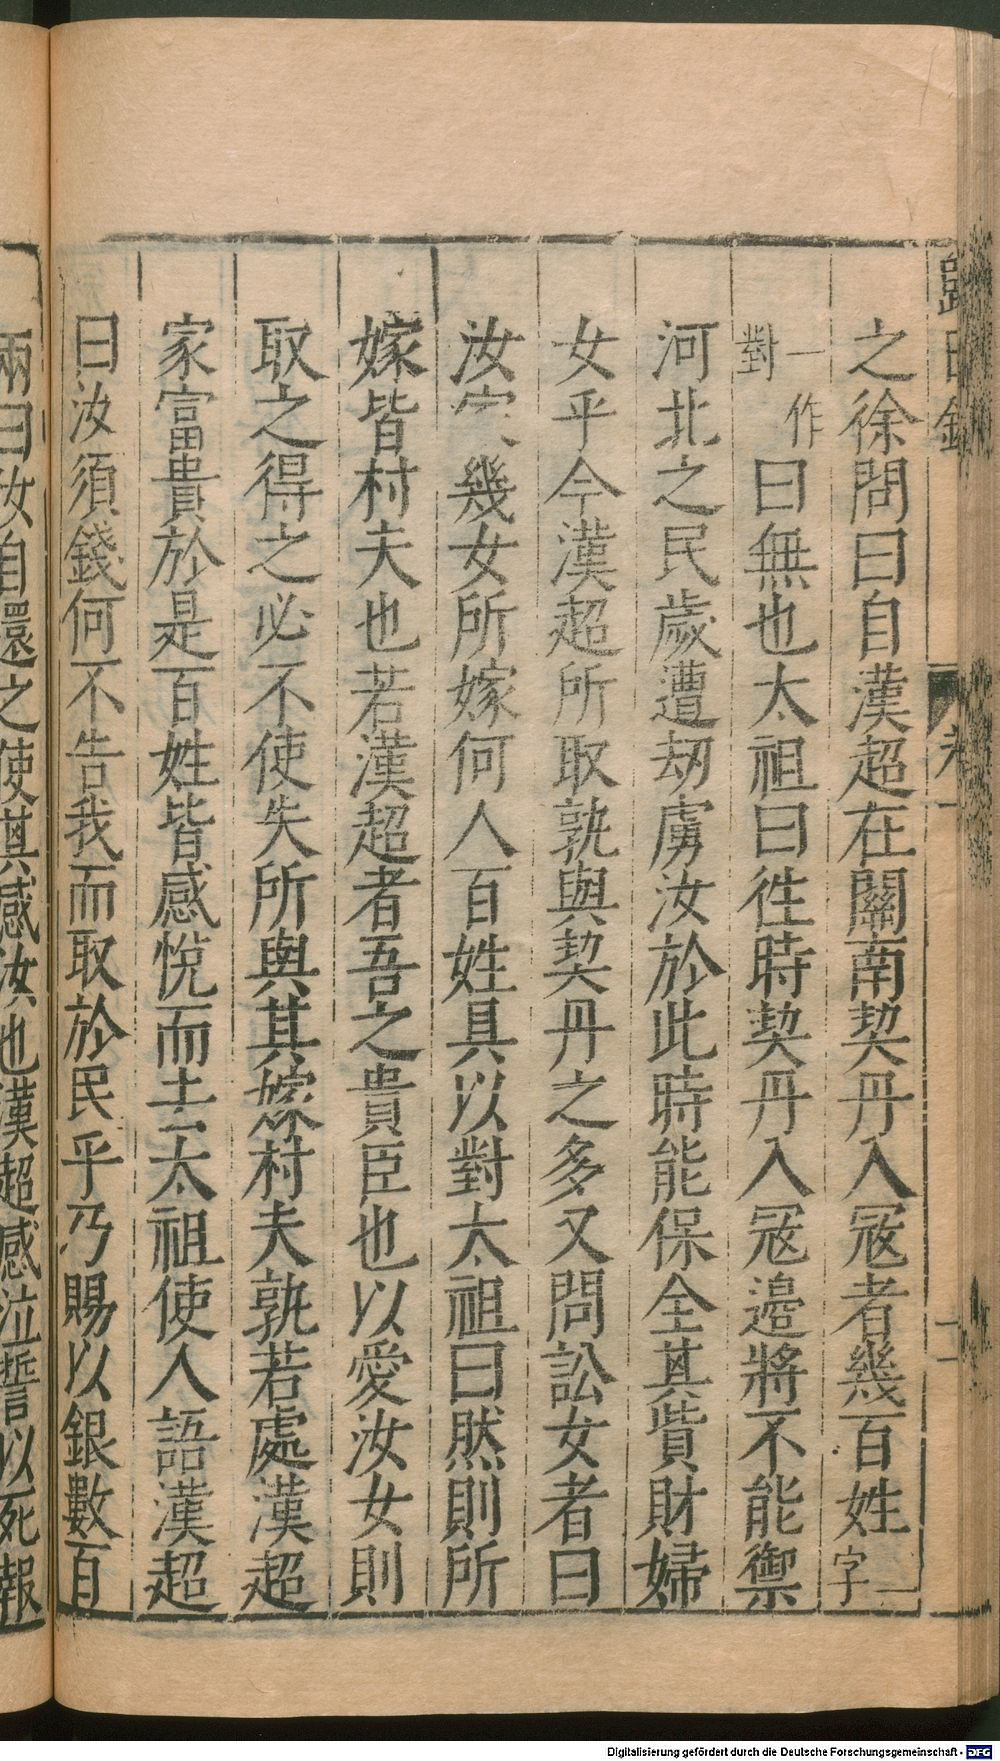 歸田錄
卷一
十一
之徐問曰自漢超在關南契丹入冦者幾百姓一字
一作對曰無也太祖曰徃時契丹入冦邉將不能禦
河北之民歲遭刼虜汝於此時能保全其貲財婦
女乎今漢超所取孰與契丹之多又問訟女者曰
汝家幾女所嫁何人百姓具以對太祖曰然則所
嫁皆村夫也若漢超者吾之貴臣也以愛汝女則
取之得之必不使失所與其嫁村夫孰若處漢超
家富貴於是百姓皆感悅而去太祖使人語漢超
曰汝須錢何不告我而取於民乎乃賜以銀數百
兩曰汝自還之使其感汝也漢超感泣誓以死報
Digitalisierung gefördert durch die Deutsche Forschungsgemeinschaft - DFG